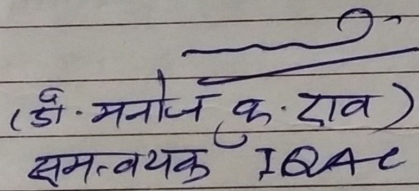 (डॉ. मनोज कु. राव)
समन्वयक IQAC